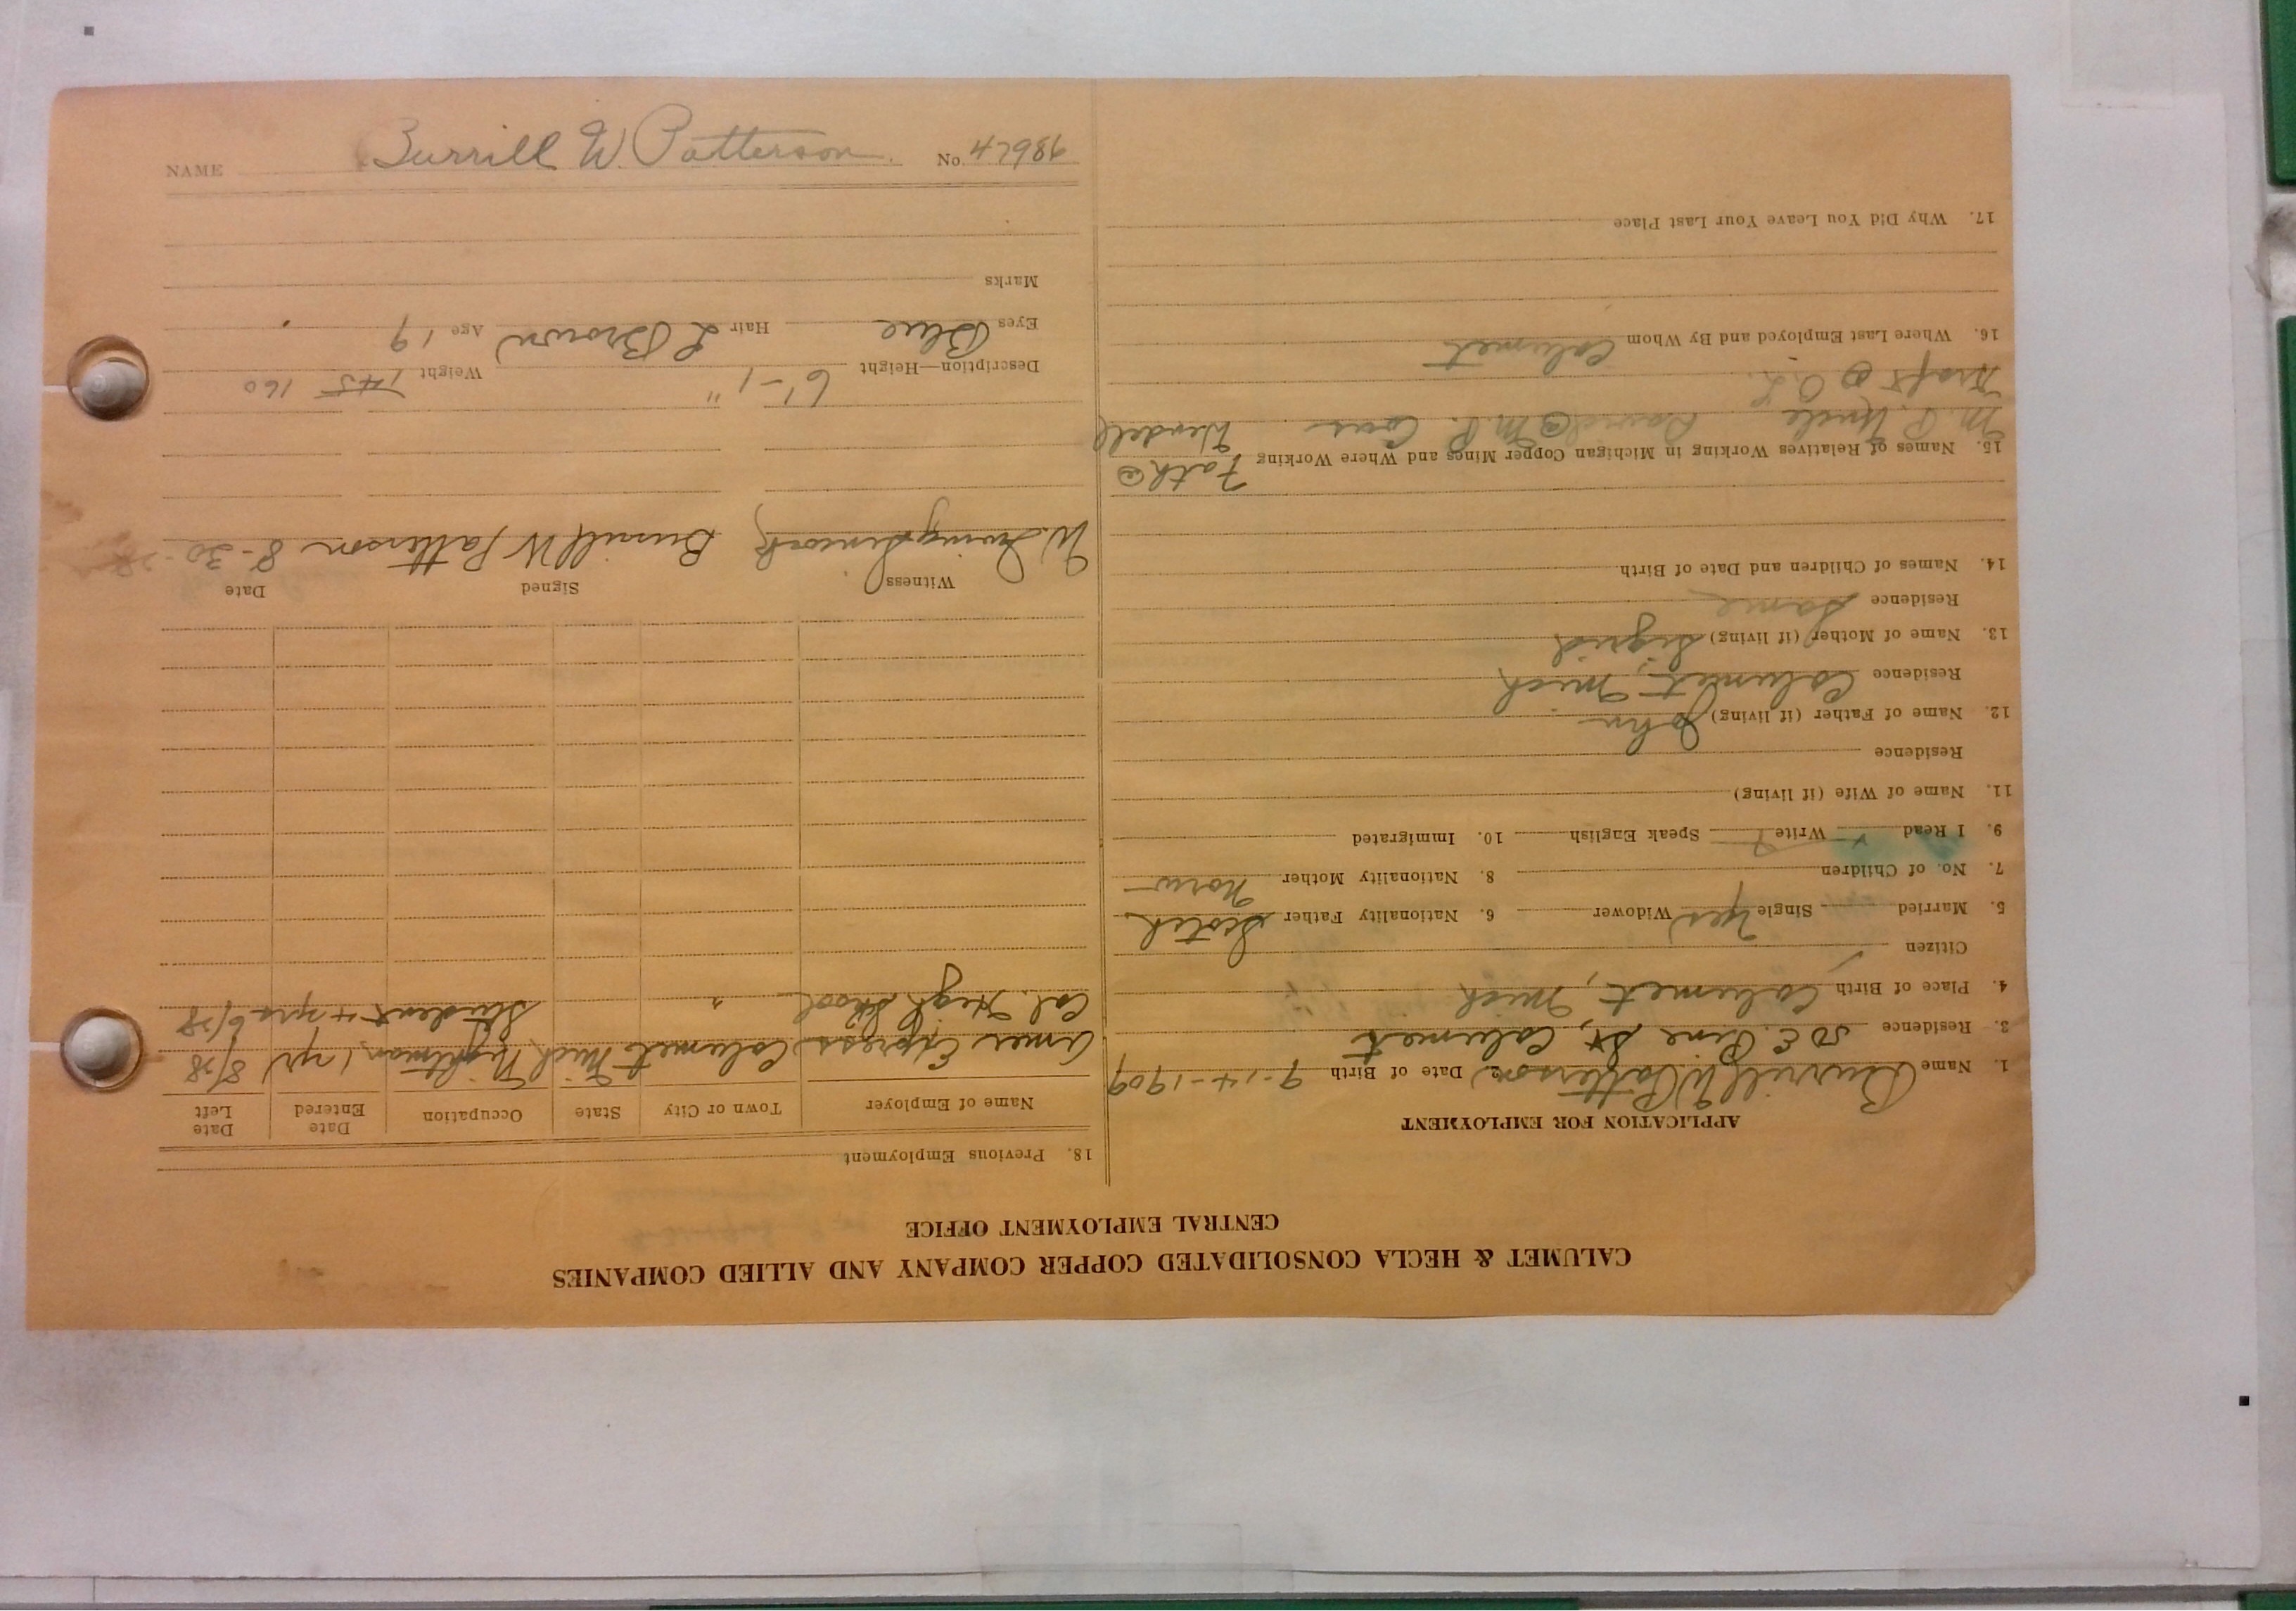 CALUMET & HECLA CONSOLIDATED COPPER COMPANY AND ALLIED COMPANIES
CENTRAL EMPLOYMENT OFFICE
APPLICATION FOR EMPLOYMENT
1. Name Burrill W Patterson 2 Date of Birth 9-14-1909
3. Residence 50 E. Pine St, Calumet
4. Place of Birth Calumet, Mich
Citizen
5. Married Single Yes Widower 6. Nationality Father Scotch
7. No. of Children 8. Nationality Mother Norw
9. I Read Write Speak English 10. Immigrated
11. Name of Wife (if living)
Residence
12. Name of Father (if living) John
Residence Calumet, Mich
13. Name of Mother (if living) Sigrid
Residence Same
14. Names of Children and Date of Birth
15. Names of Relatives Working in Michigan Copper Mines and Where Working Fath @
M. P. Uncle David @ M. P. Cous Wendell
@ O. L.
16. Where Last Employed and By Whom Calumet
17. Why Did You Leave Your Last Place
18. Previous Employment
Name of Employer Town or City State Occupation Date Entered Date Left
Amer Express Calumet Mich Nightman 1 yr 8/28
Cal. High School " Student 4 yrs 6/28
Witness Signed Date
W. Irving Burrill W Patterson 8-30-28
Description—Height 6'-1" Weight 145 160
Eyes Blue Hair L Brown Age 19
Marks
NAME Burrill W. Patterson. No. 47986